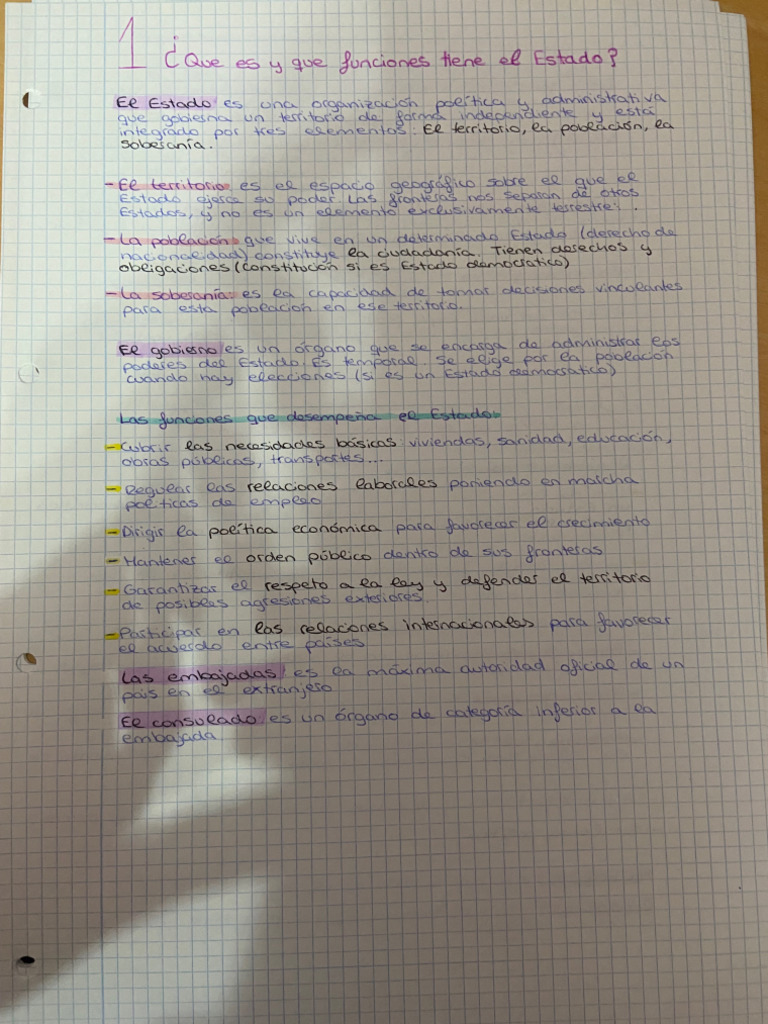 1 ¿Que es y que funciones tiene el Estado?
El Estado es una organización política y administrativa
que gobierna un territorio de forma independiente y está
integrado por tres elementos: El territorio, la población, la
soberanía.
- El territorio: es el espacio geográfico sobre el que el
Estado ejerce su poder. Las fronteras nos separan de otros
Estados, y no es un elemento exclusivamente terrestre.
- La población: que vive en un determinado Estado (derecho de
nacionalidad) constituye la ciudadanía. Tienen derechos y
obligaciones (Constitución si es Estado democratico)
- La soberanía: es la capacidad de tomar decisiones vinculantes
para esta población en ese territorio.
El gobierno es un órgano que se encarga de administrar los
poderes del Estado. Es temporal. Se elige por la población
cuando hay elecciones (si es un Estado democratico)
Las funciones que desempeña el Estado:
- Cubrir las necesidades básicas viviendas, sanidad, educación,
obras públicas, transportes...
- Regular las relaciones laborales poniendo en marcha
políticas de empleo
- Dirigir la política económica para favorecer el crecimiento
- Mantener el orden público dentro de sus fronteras
- Garantizar el respeto a la ley y defender el territorio
de posibles agresiones exteriores.
- Participar en las relaciones internacionales para favorecer
el acuerdo entre países
Las embajadas es la máxima autoridad oficial de un
país en el extranjero
El consulado es un órgano de categoría inferior a la
embajada